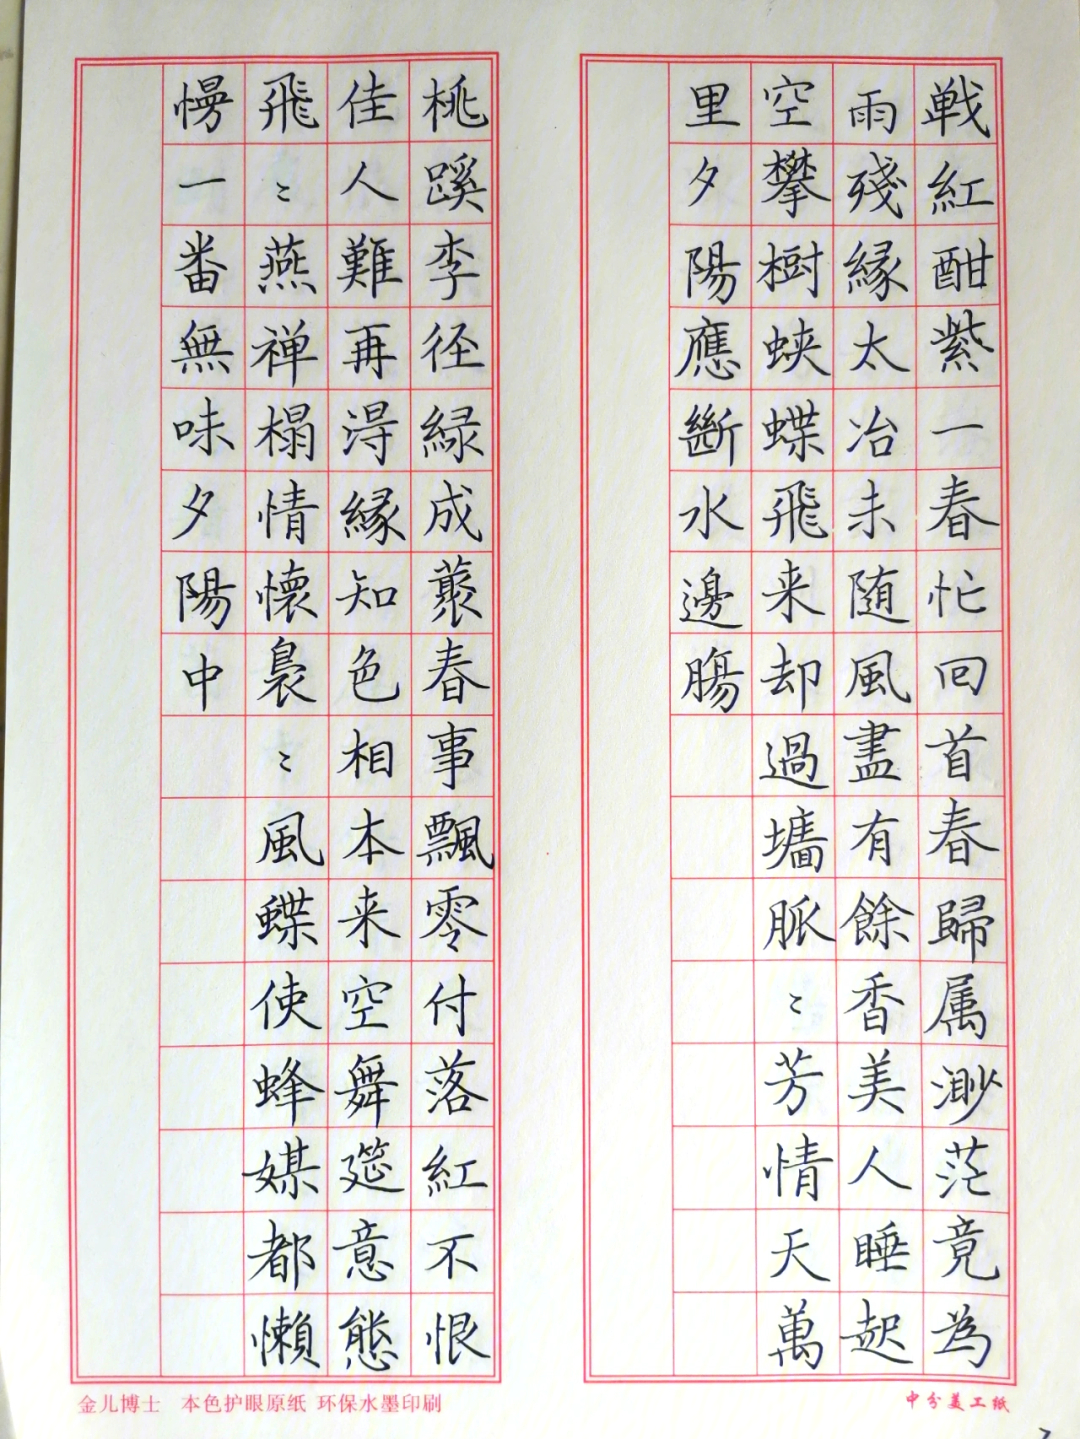 戦紅酣紫一春忙回首春歸属渺茫竟為
雨殘緣太冶未随風盡有餘香美人睡起
空攀樹蛺蝶飛来却過墻脈〻芳情天萬
里夕陽應斷水邊腸
桃蹊李径緑成叢春事飄零付落紅不恨
佳人難再淂緣知色相本来空舞筵意態
飛〻燕禅榻情懷裊〻風蝶使蜂媒都懶
慢一番無味夕陽中
金儿博士 本色护眼原纸 环保水墨印刷
中分美工纸